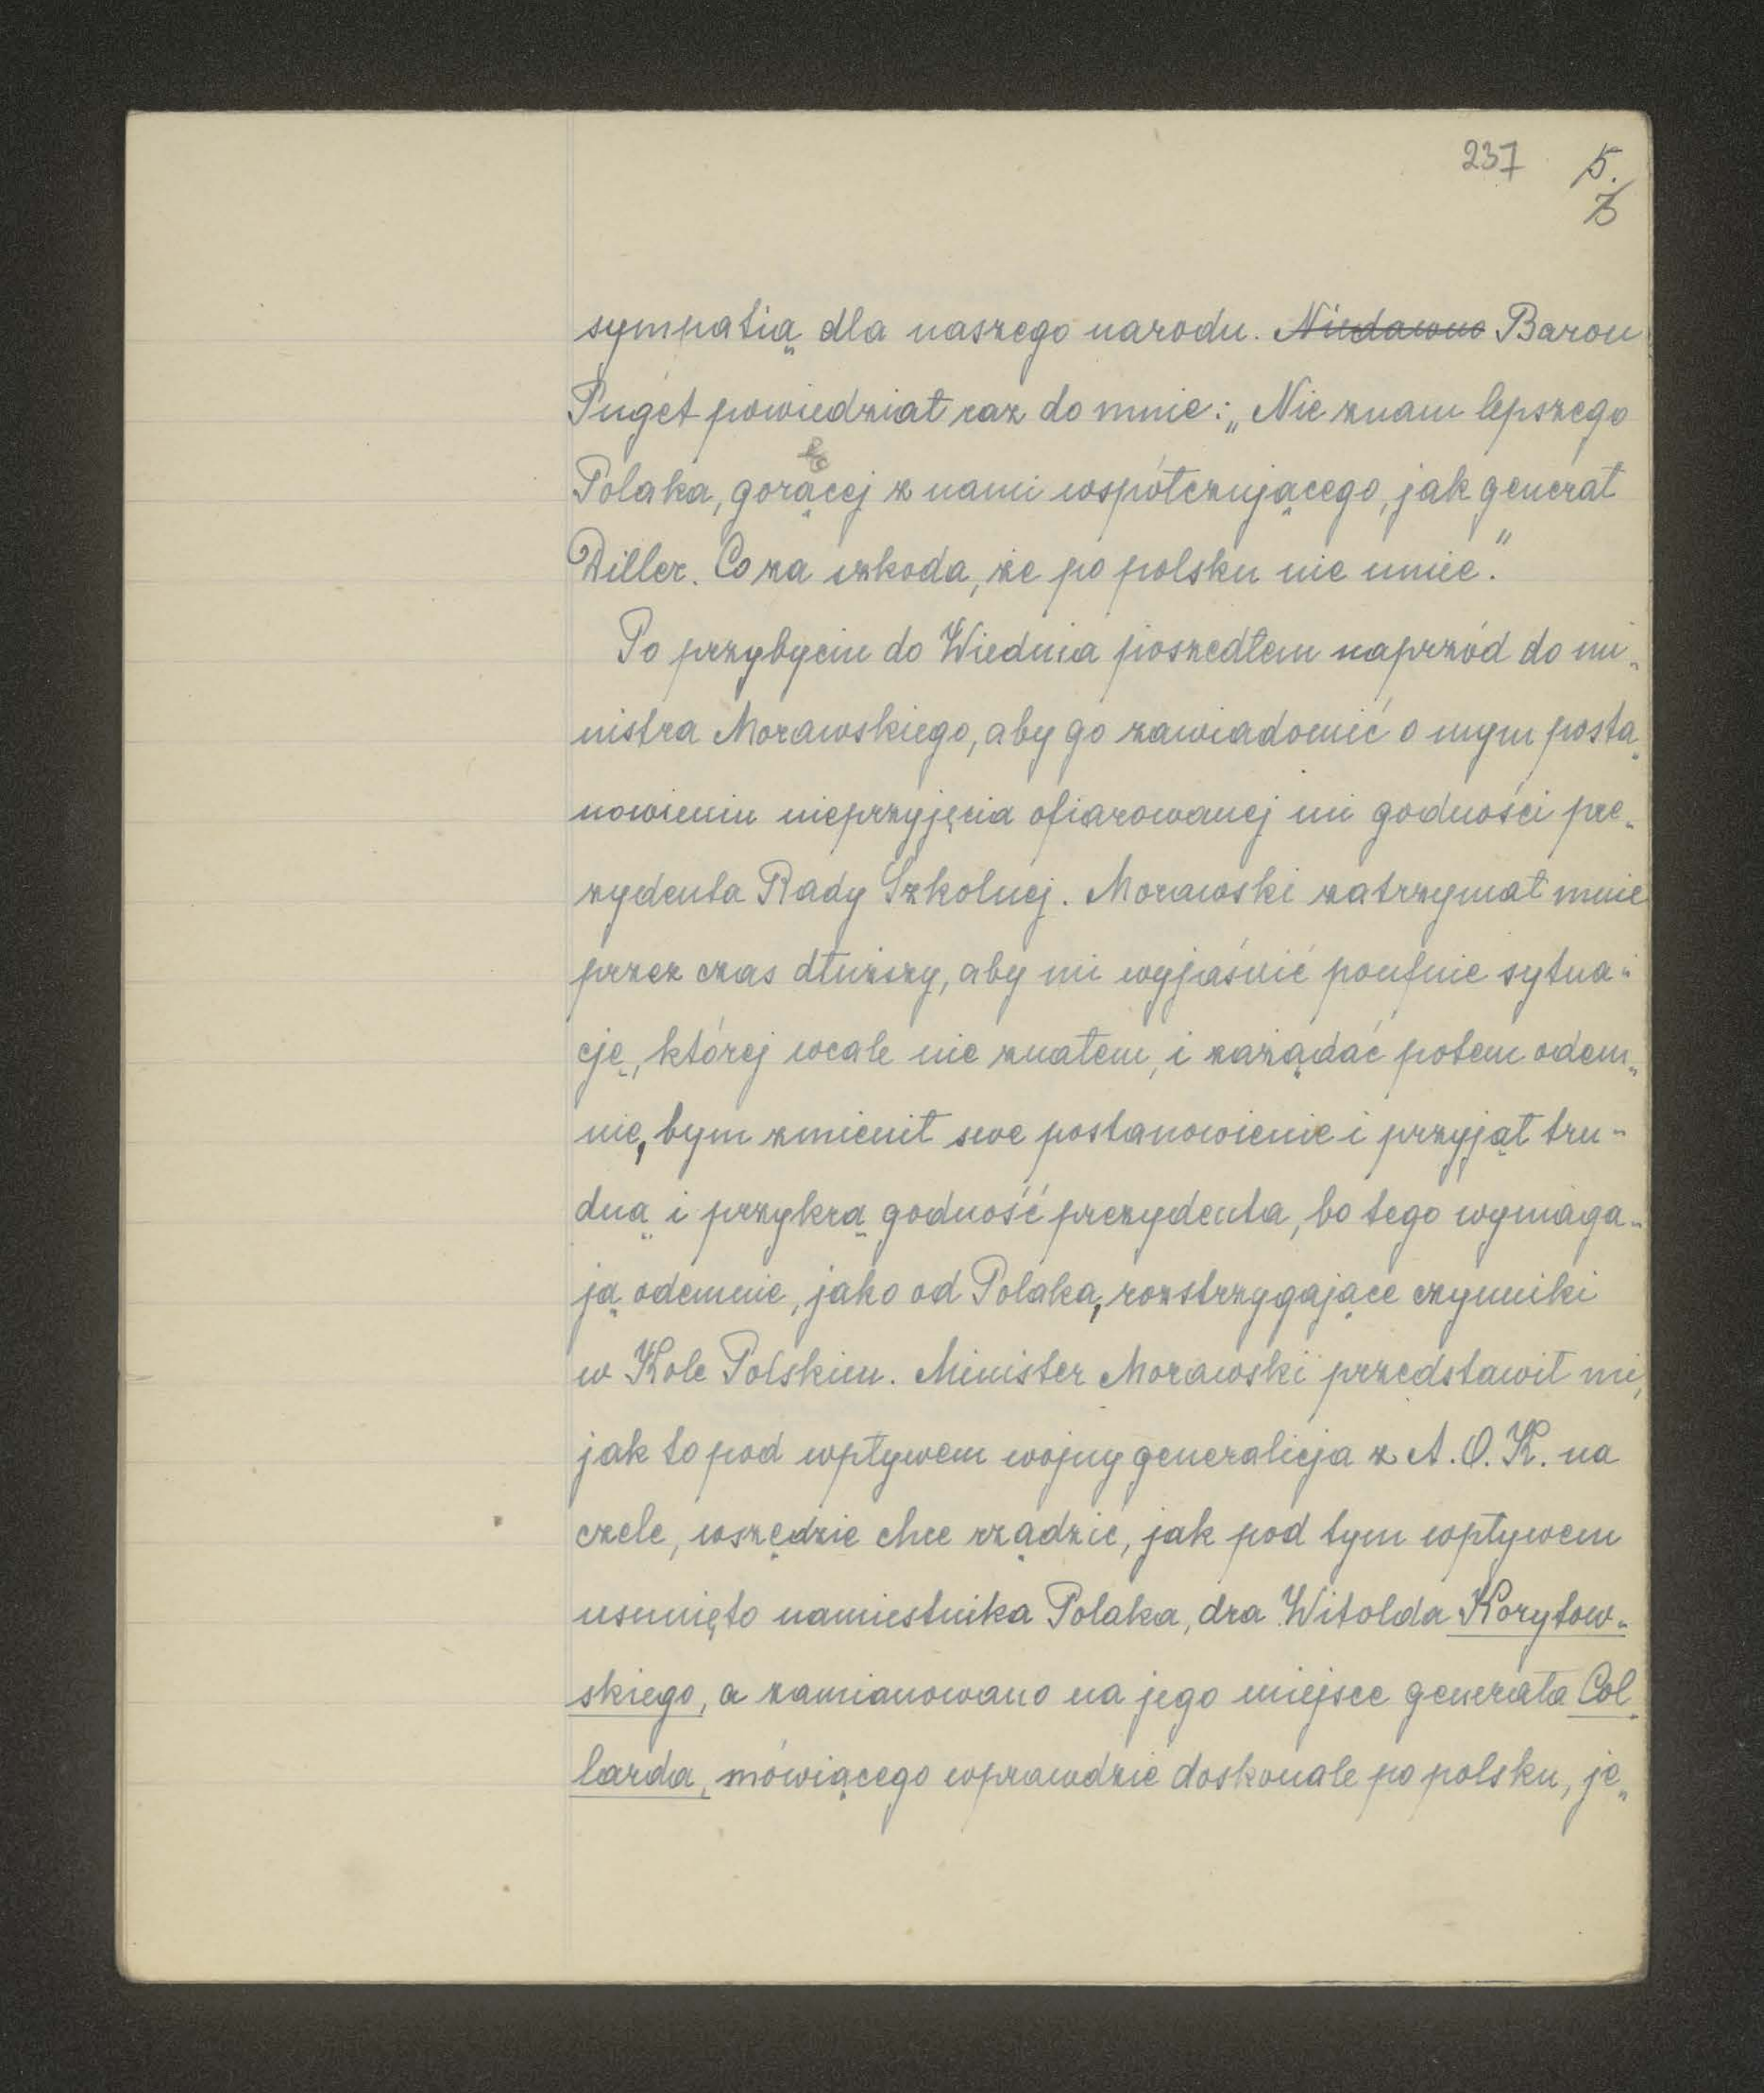 237 5.
3
sympatią dla naszego narodu. Niedawno Baron
Puget powiedział raz do mnie: „Nie znam lepszego
Polaka, goręcej z nami współczującego, jak generał
Diller. Co za szkoda, że po polsku nie umie."
Po przybyciu do Wiednia poszedłem naprzód do mi-
nistra Morawskiego, aby go zawiadomić o mym posta-
nowieniu nieprzyjęcia ofiarowanej mi godności pre-
zydenta Rady Szkolnej. Morawski zatrzymał mnie
przez czas dłuższy, aby mi wyjaśnić poufnie sytua-
cję, której wcale nie znałem, i zażądać potem odem-
nie, bym zmienił swe postanowienie i przyjął tru-
dną i przykrą godność prezydenta, bo tego wymaga-
ją odemnie, jako od Polaka, rozstrzygające czynniki
w Kole Polskiem. Minister Morawski przedstawił mi,
jak to pod wpływem wojny generalicja z A.O.K. na
czele, wszędzie chce rządzić, jak pod tym wpływem
usunięto namiestnika Polaka, dra Witolda Korytow-
skiego, a zamianowano na jego miejsce generała Col-
larda, mówiącego wprawdzie doskonale po polsku, je-